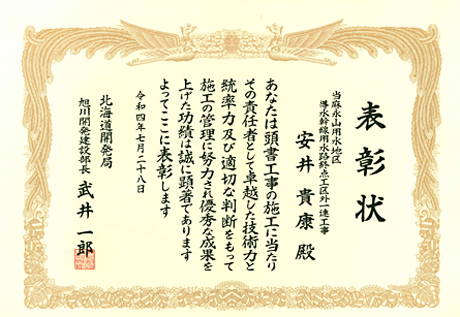 表彰状
当麻永山用水地区
導水幹線用水路終点工区外一連工事
安井貴康殿
あなたは頭書工事の施工に当たり
その責任者として卓越した技術力と
統率力及び適切な判断をもって
施工の管理に努力され優秀な成果を
上げた功績は誠に顕著であります
よってここに表彰します
令和四年七月二十八日
北海道開発局
旭川開発建設部長 武井一郎